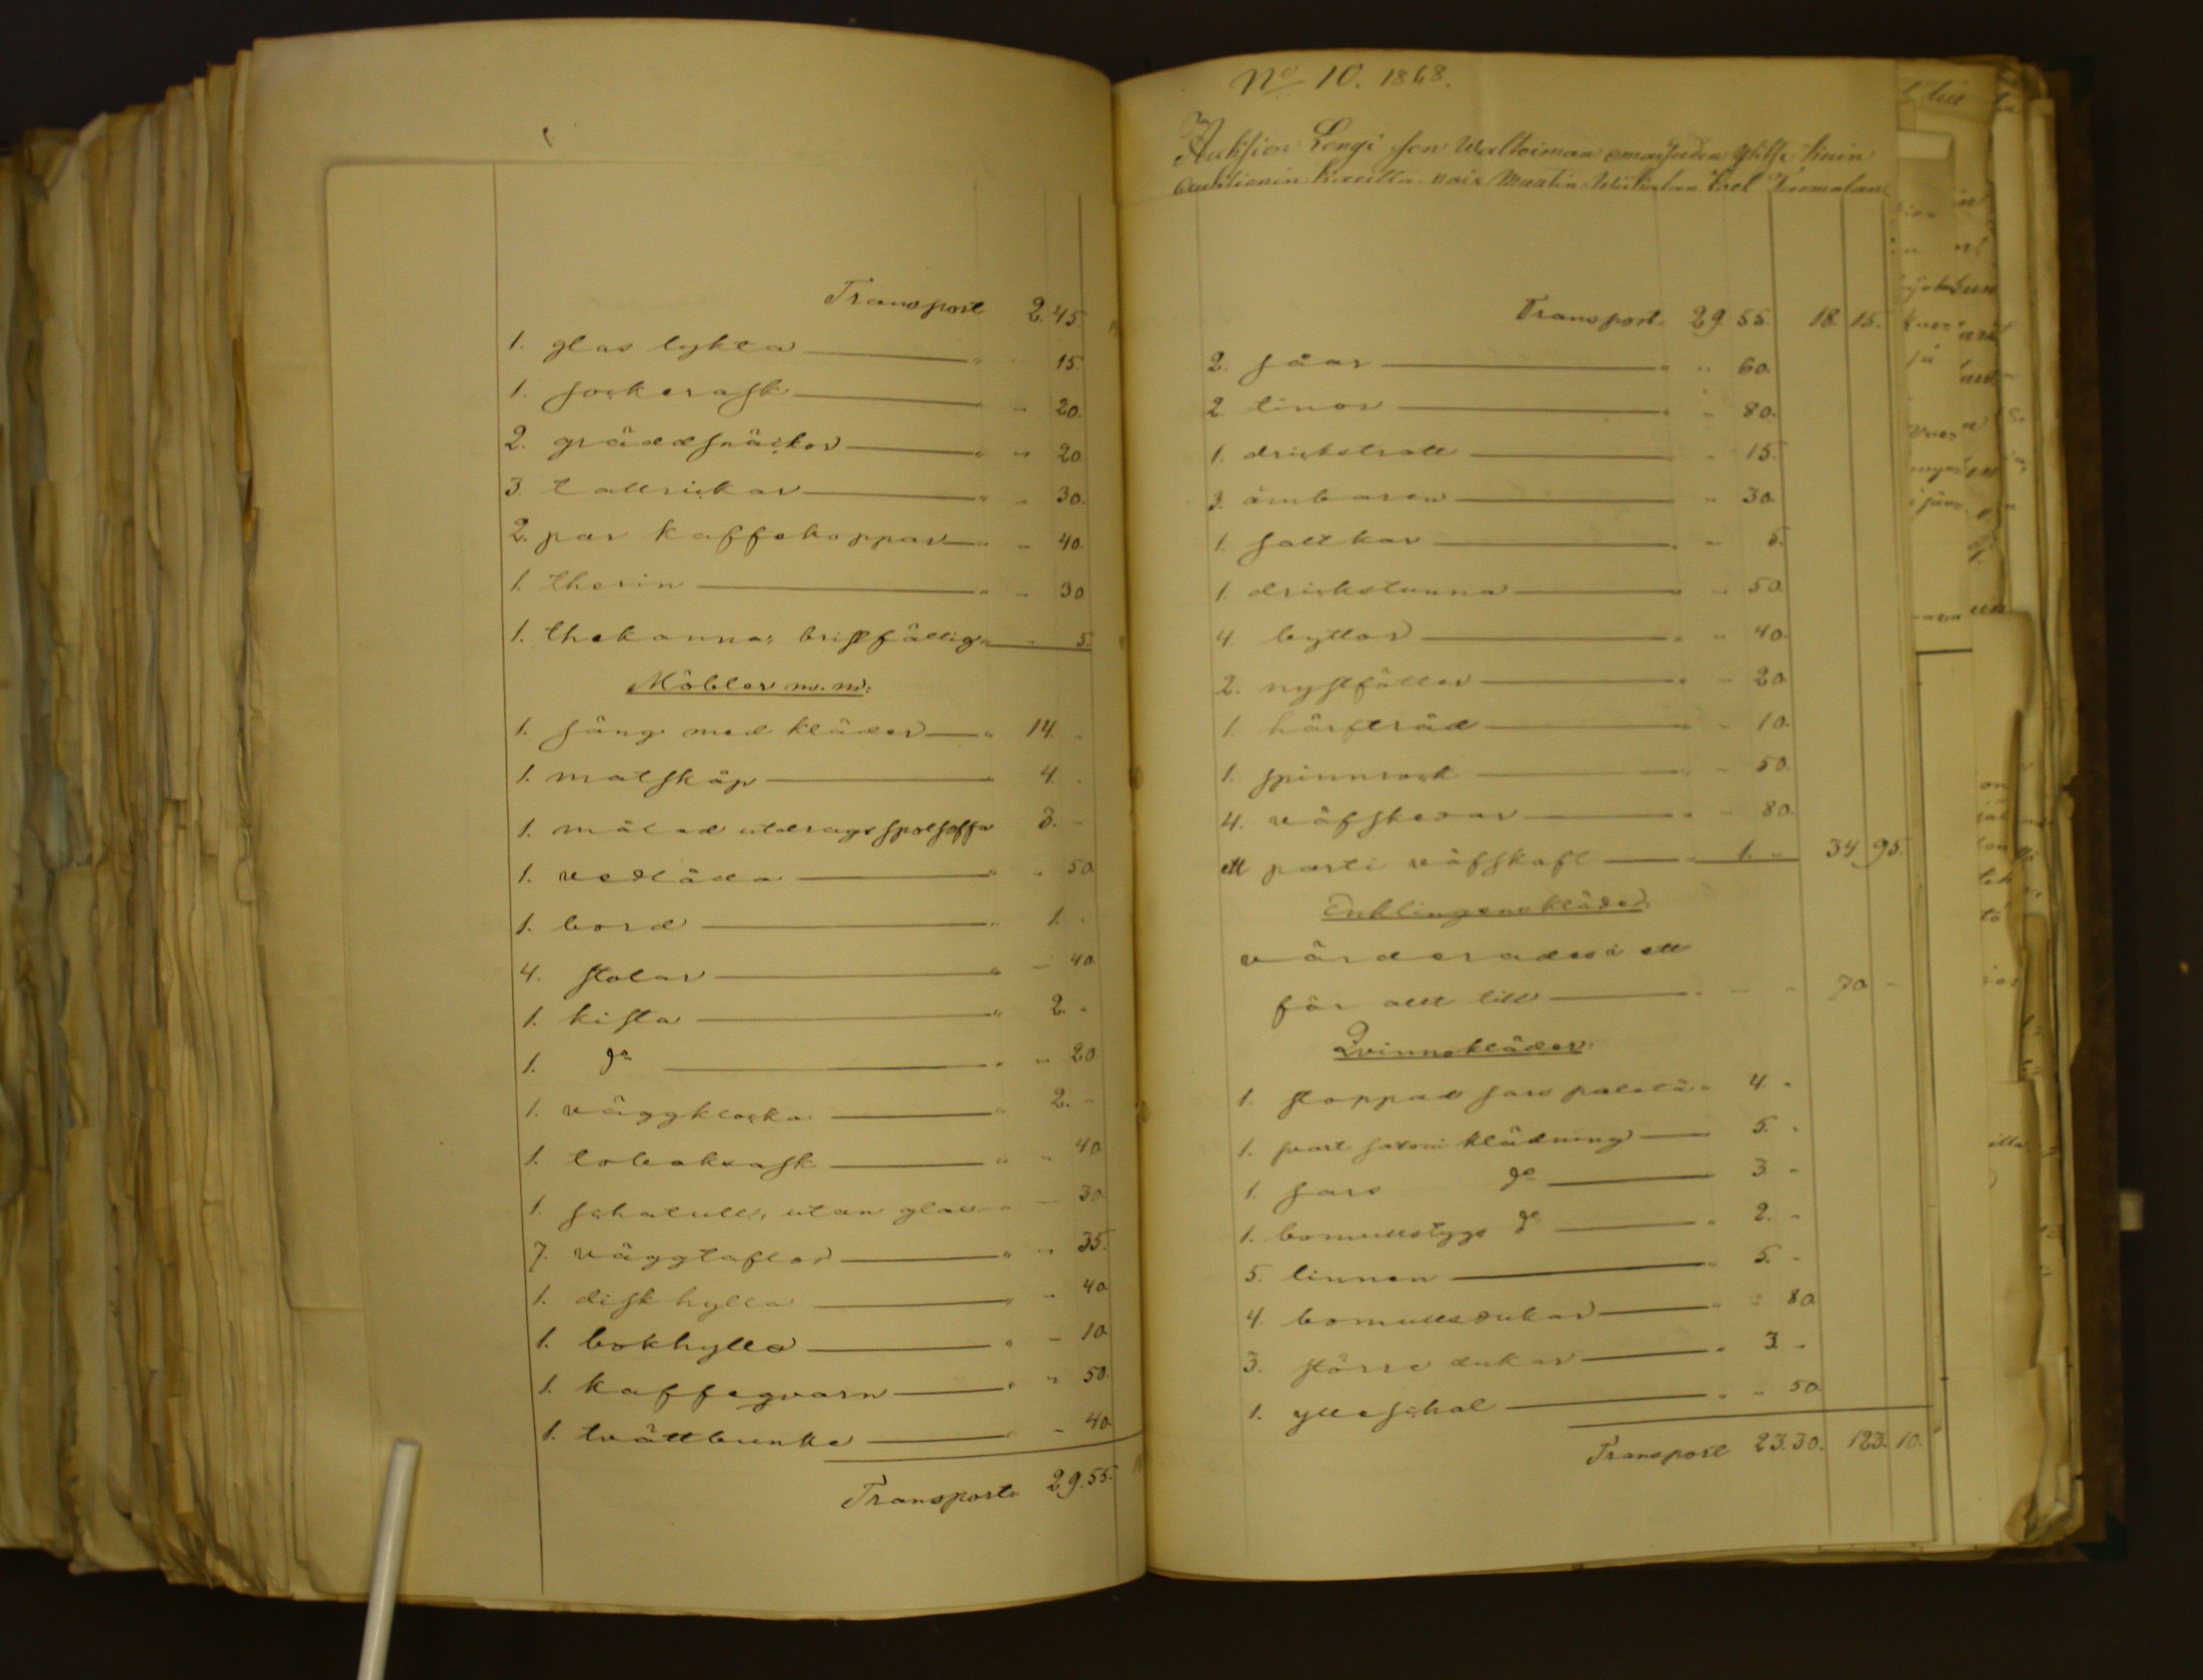 Transport 2.45.
1. glas lykta " " 15.
1. sockerask " " 20.
2. gräddsnäckor " " 20
3. tallrickar " " 30.
2. par kaffekoppar " " 40.
1. therin " " 30
1. thekanna, bristfällig " " 5.
Möbler m.m:
1. säng med kläder " 14 -
1. matskåp 4. -
1. målad utdrags spolsoffa 3. -
1. vedlåda " " 50
1. bord " 1. -
4. stolar " " 40
1. kista " 2. -
1. do " " 20
1. väggklocka " 2. -
1. tobaksask " " 40
1. schatull, utan glas " " 30.
7. väggtaflor " " 35.
1. disk hylla " " 40
1. bokhylla " " 10
1. kaffeqvarn " " 50.
1. tvättbunke " " 40
Transport 29.55.
No 10. 1868.
Auksion Longi sen Waltoiman omaisuden
Transport. 29 55. 18. 15.
2. såar " " 60.
2 tinor " " 80.
1. drickstratt " 15.
3. ämbaren " 30.
1. saltkar " " 5.
1. drickstunna " " 50.
4. byttor " " 40.
2. nystfötter " " 20
1. härfträd " " 10.
1. spinnrock " " 50.
4. väfskedar " " 80.
ett parti väfskaft " 1. - 34. 95.
Enklingens kläder.
värderades i ett
för allt till " " " 70 -
Qvinnokläder.
1. stoppad sars paletå " 4. -
1. svart satoni klädning 5. -
1. sars do 3 -
1. bomullstygs do " 2. -
5. linnen " 5. -
4. bomullsdukar " " 80
3. större dukar " 3 -
1. ylleschal " " 50
Transport 23.30. 123. 10.